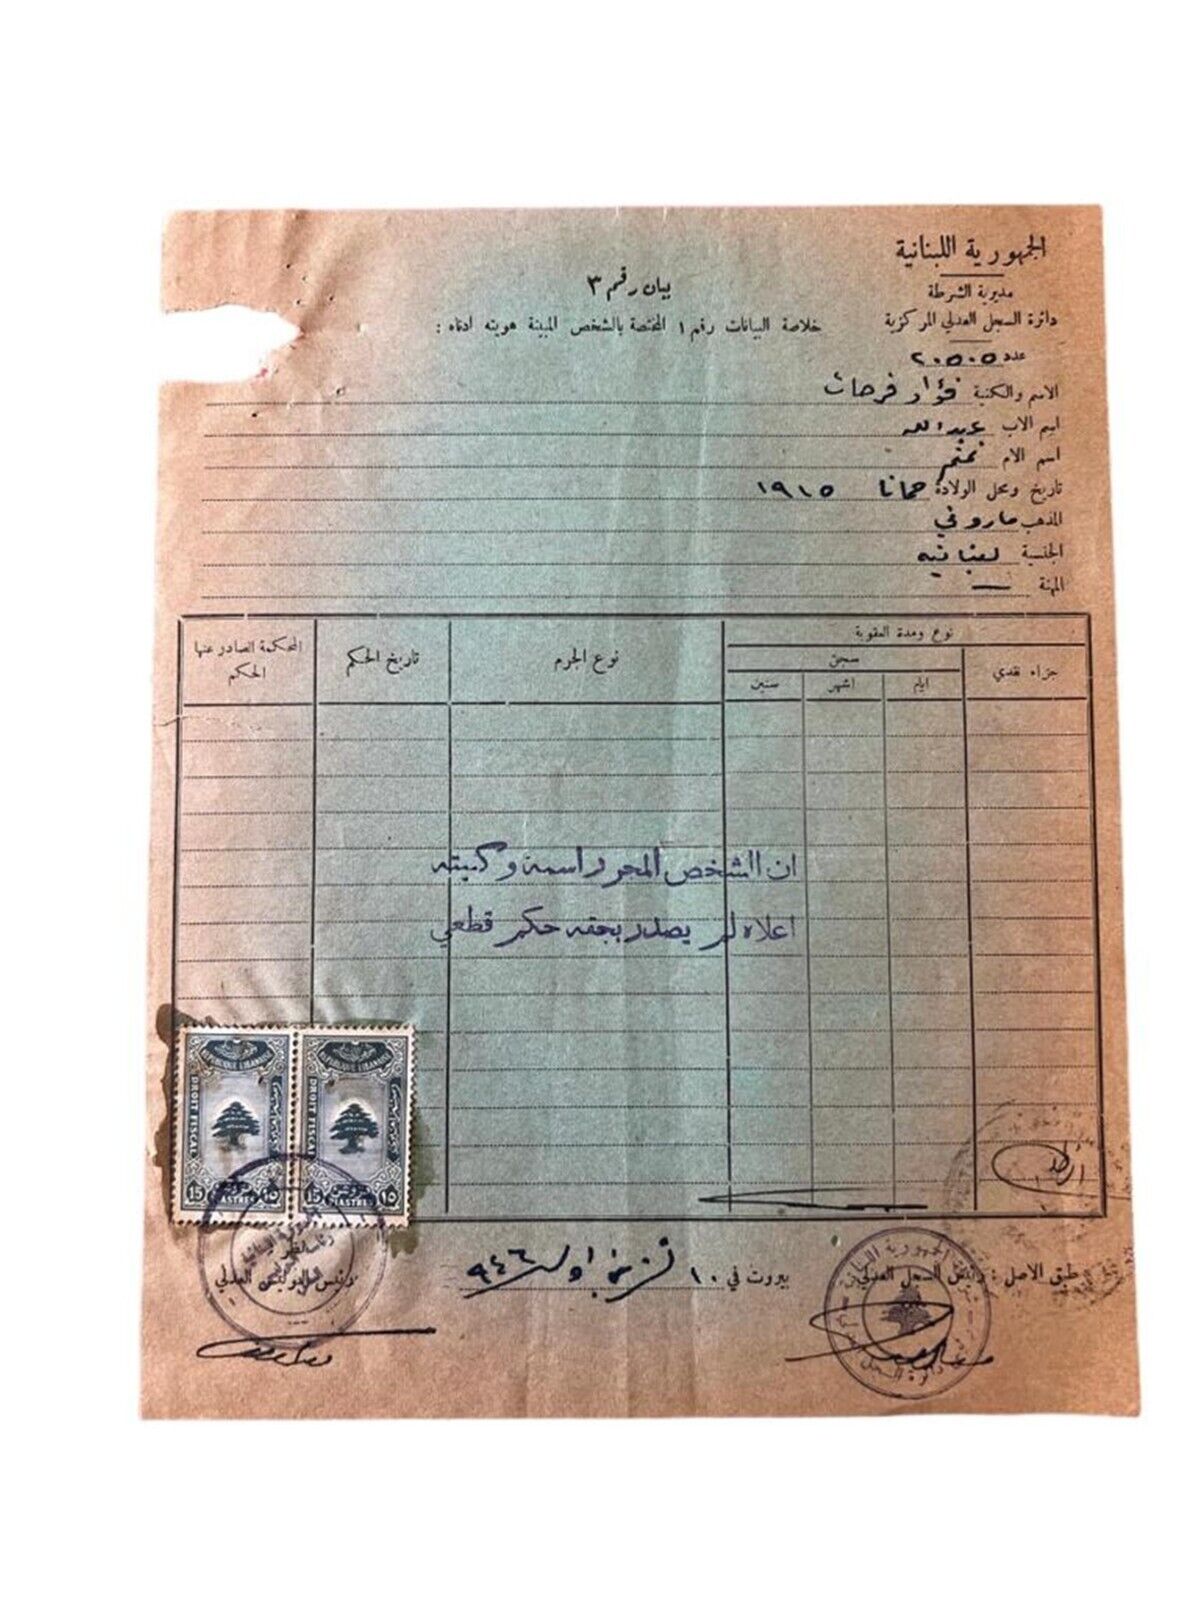 الجمهورية اللبنانية
مديرية الشرطة
دائرة السجل العدلي المركزية
عدد ٢٠٥٠٥
بيان رقم ٣
خلاصة البيانات رقم ١ المختصة بالشخص المبينة هويته ادناه :
الاسم والكنية فؤاد فرحات
اسم الاب عبدالله
اسم الام
تاريخ ومحل الولادة حمانا ١٩١٥
المذهب ماروني
الجنسية لبنانيه
المهنة —
نوع ومدة العقوبة
جزاء نقدي
سجن
ايام
اشهر
سنين
نوع الجرم
تاريخ الحكم
المحكمة الصادر عنها
الحكم
ان الشخص المحرر اسمه وكنيته
اعلاه لم يصدر بحقه حكم قطعي
REPUBLIQUE LIBANAISE
DROIT FISCAL
15 PIASTRES ١٥
REPUBLIQUE LIBANAISE
DROIT FISCAL
15 PIASTRES ١٥
طبق الاصل : رئيس السجل العدلي
بيروت في ١٠ تشرين اول ٩٤٦
رئيس البوليس العدلي
الجمهورية اللبنانية
دائرة السجل